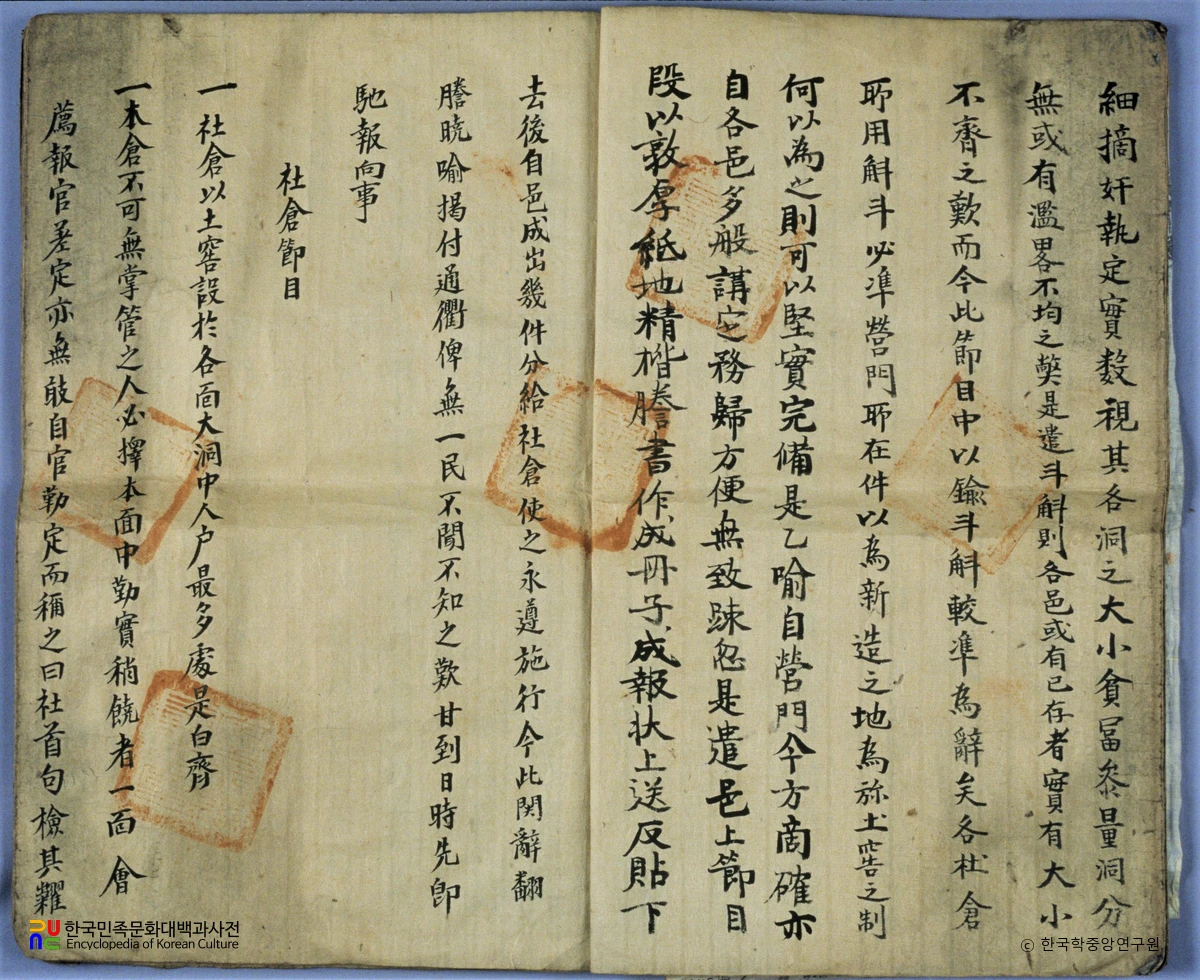 細摘奸執定實数視其各洞之大小貧冨叅量洞分
無或有濫畧不均之獘是遣斗斛則各邑或有已存者實有大小
不齊之歎而今此節目中以鍮斗斛較準為辭矣各社倉
所用斛斗必準營門所在件以為新造之地為旀土窖之制
何以為之則可以堅實完備是乙喻自營門今方啇確亦
自各邑多般講定務歸方便無致踈忽是遣邑上節目
段以敦厚紙地精楷謄書作成冊子成報狀上送反貼下
去後自邑成出幾件分給社倉使之永遵施行今此関辭翻
謄曉喻揭付通衢俾無一民不聞不知之歎甘到日時先卽
馳報向事
社倉節目
一社倉以土窖設於各面大洞中人户最多處是白齊
一本倉不可無掌管之人必擇本面中勤實稍饒者一面會
薦報官差定亦無敢自官勒定而稱之曰社首句檢其糶
한국민족문화대백과사전
Encyclopedia of Korean Culture
© 한국학중앙연구원